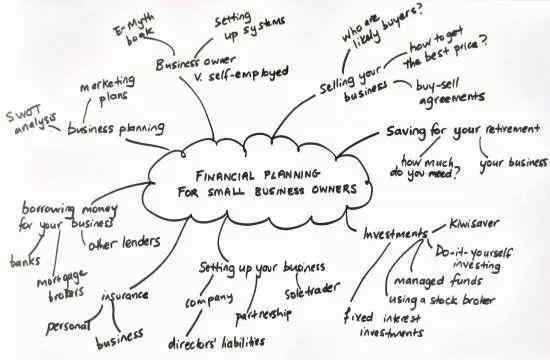 E-Myth
book
Setting
up systems
Business owner
v. self-employed
who are
likely buyers?
how to get
the best price?
Selling your
business
buy-sell
agreements
marketing
plans
SWOT
analysis
business planning
Saving for your retirement
how much
do you need?
your business
FINANCIAL PLANNING
FOR SMALL BUSINESS OWNERS
borrowing money
for your business
banks
mortgage
brokers
other lenders
insurance
personal
business
Setting up your business
company
partnership
sole trader
directors' liabilities
Investments
Kiwisaver
Do-it-yourself
investing
managed funds
using a stock broker
fixed interest
investments